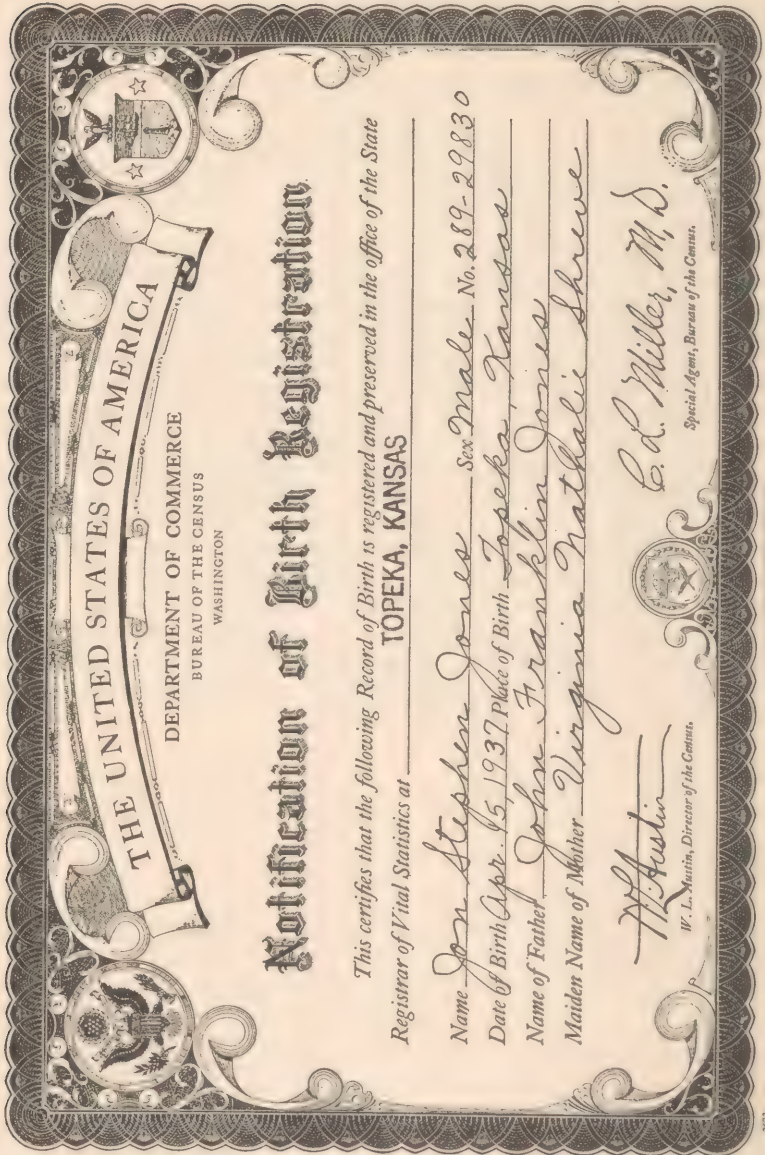 THE UNITED STATES OF AMERICA
DEPARTMENT OF COMMERCE
BUREAU OF THE CENSUS
WASHINGTON
Notification of Birth Registration
This certifies that the following Record of Birth is registered and preserved in the office of the State
Registrar of Vital Statistics at TOPEKA, KANSAS
Name Jon Stephen Jones Sex Male No. 289-29830
Date of Birth Apr. 15, 1937 Place of Birth Topeka, Kansas
Name of Father John Franklin Jones
Maiden Name of Mother Virginia Nathalie Shreve
W. L. Austin C. L. Miller, M.D.
W. L. Austin, Director of the Census. Special Agent, Bureau of the Census.